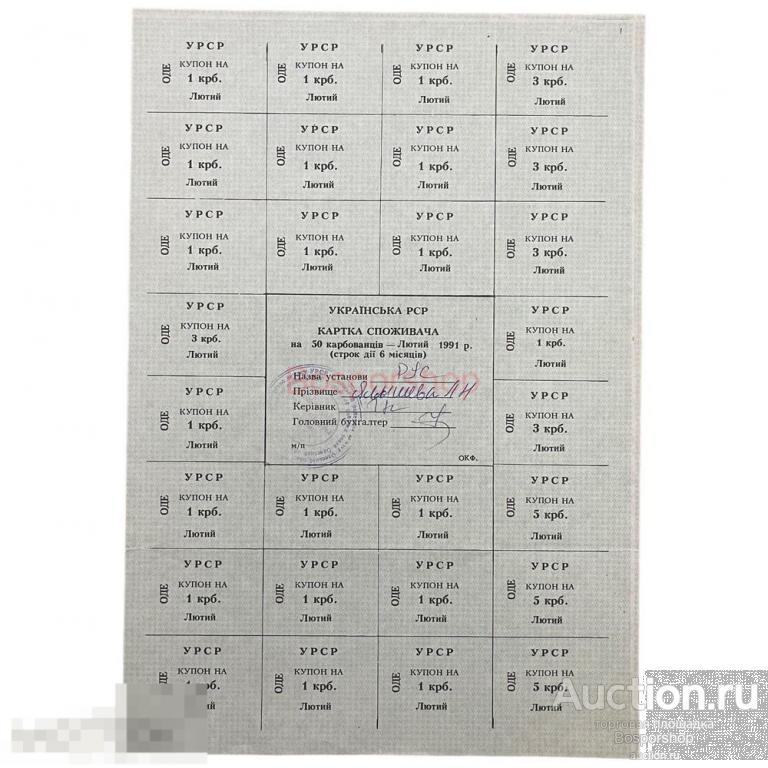 УРСР УРСР УРСР УРСР
ОДЕ КУПОН НА ОДЕ КУПОН НА ОДЕ КУПОН НА ОДЕ КУПОН НА
1 крб. 1 крб. 1 крб. 3 крб.
Лютий Лютий Лютий Лютий
УРСР УРСР УРСР УРСР
ОДЕ КУПОН НА ОДЕ КУПОН НА ОДЕ КУПОН НА ОДЕ КУПОН НА
1 крб. 1 крб. 1 крб. 3 крб.
Лютий Лютий Лютий Лютий
УРСР УРСР УРСР УРСР
ОДЕ КУПОН НА ОДЕ КУПОН НА ОДЕ КУПОН НА ОДЕ КУПОН НА
1 крб. 1 крб. 1 крб. 3 крб.
Лютий Лютий Лютий Лютий
УРСР
ОДЕ КУПОН НА
3 крб.
Лютий
УРСР
ОДЕ КУПОН НА
1 крб.
Лютий
УКРАЇНСЬКА РСР
КАРТКА СПОЖИВАЧА
на 50 карбованців — Лютий 1991 р.
(строк дії 6 місяців)
Назва установи
Прізвище
Керівник
Головний бухгалтер
м/п
ОКФ.
Bosporshop
УРСР
ОДЕ КУПОН НА
1 крб.
Лютий
УРСР
ОДЕ КУПОН НА
3 крб.
Лютий
УРСР УРСР УРСР УРСР
ОДЕ КУПОН НА ОДЕ КУПОН НА ОДЕ КУПОН НА ОДЕ КУПОН НА
1 крб. 1 крб. 1 крб. 5 крб.
Лютий Лютий Лютий Лютий
УРСР УРСР УРСР УРСР
ОДЕ КУПОН НА ОДЕ КУПОН НА ОДЕ КУПОН НА ОДЕ КУПОН НА
1 крб. 1 крб. 1 крб. 5 крб.
Лютий Лютий Лютий Лютий
УРСР УРСР УРСР УРСР
ОДЕ КУПОН НА ОДЕ КУПОН НА ОДЕ КУПОН НА ОДЕ КУПОН НА
крб. 1 крб. 1 крб. 5 крб.
Лютий Лютий Лютий
Auction.ru
торговая площадка
Bosporshop
auction.ru